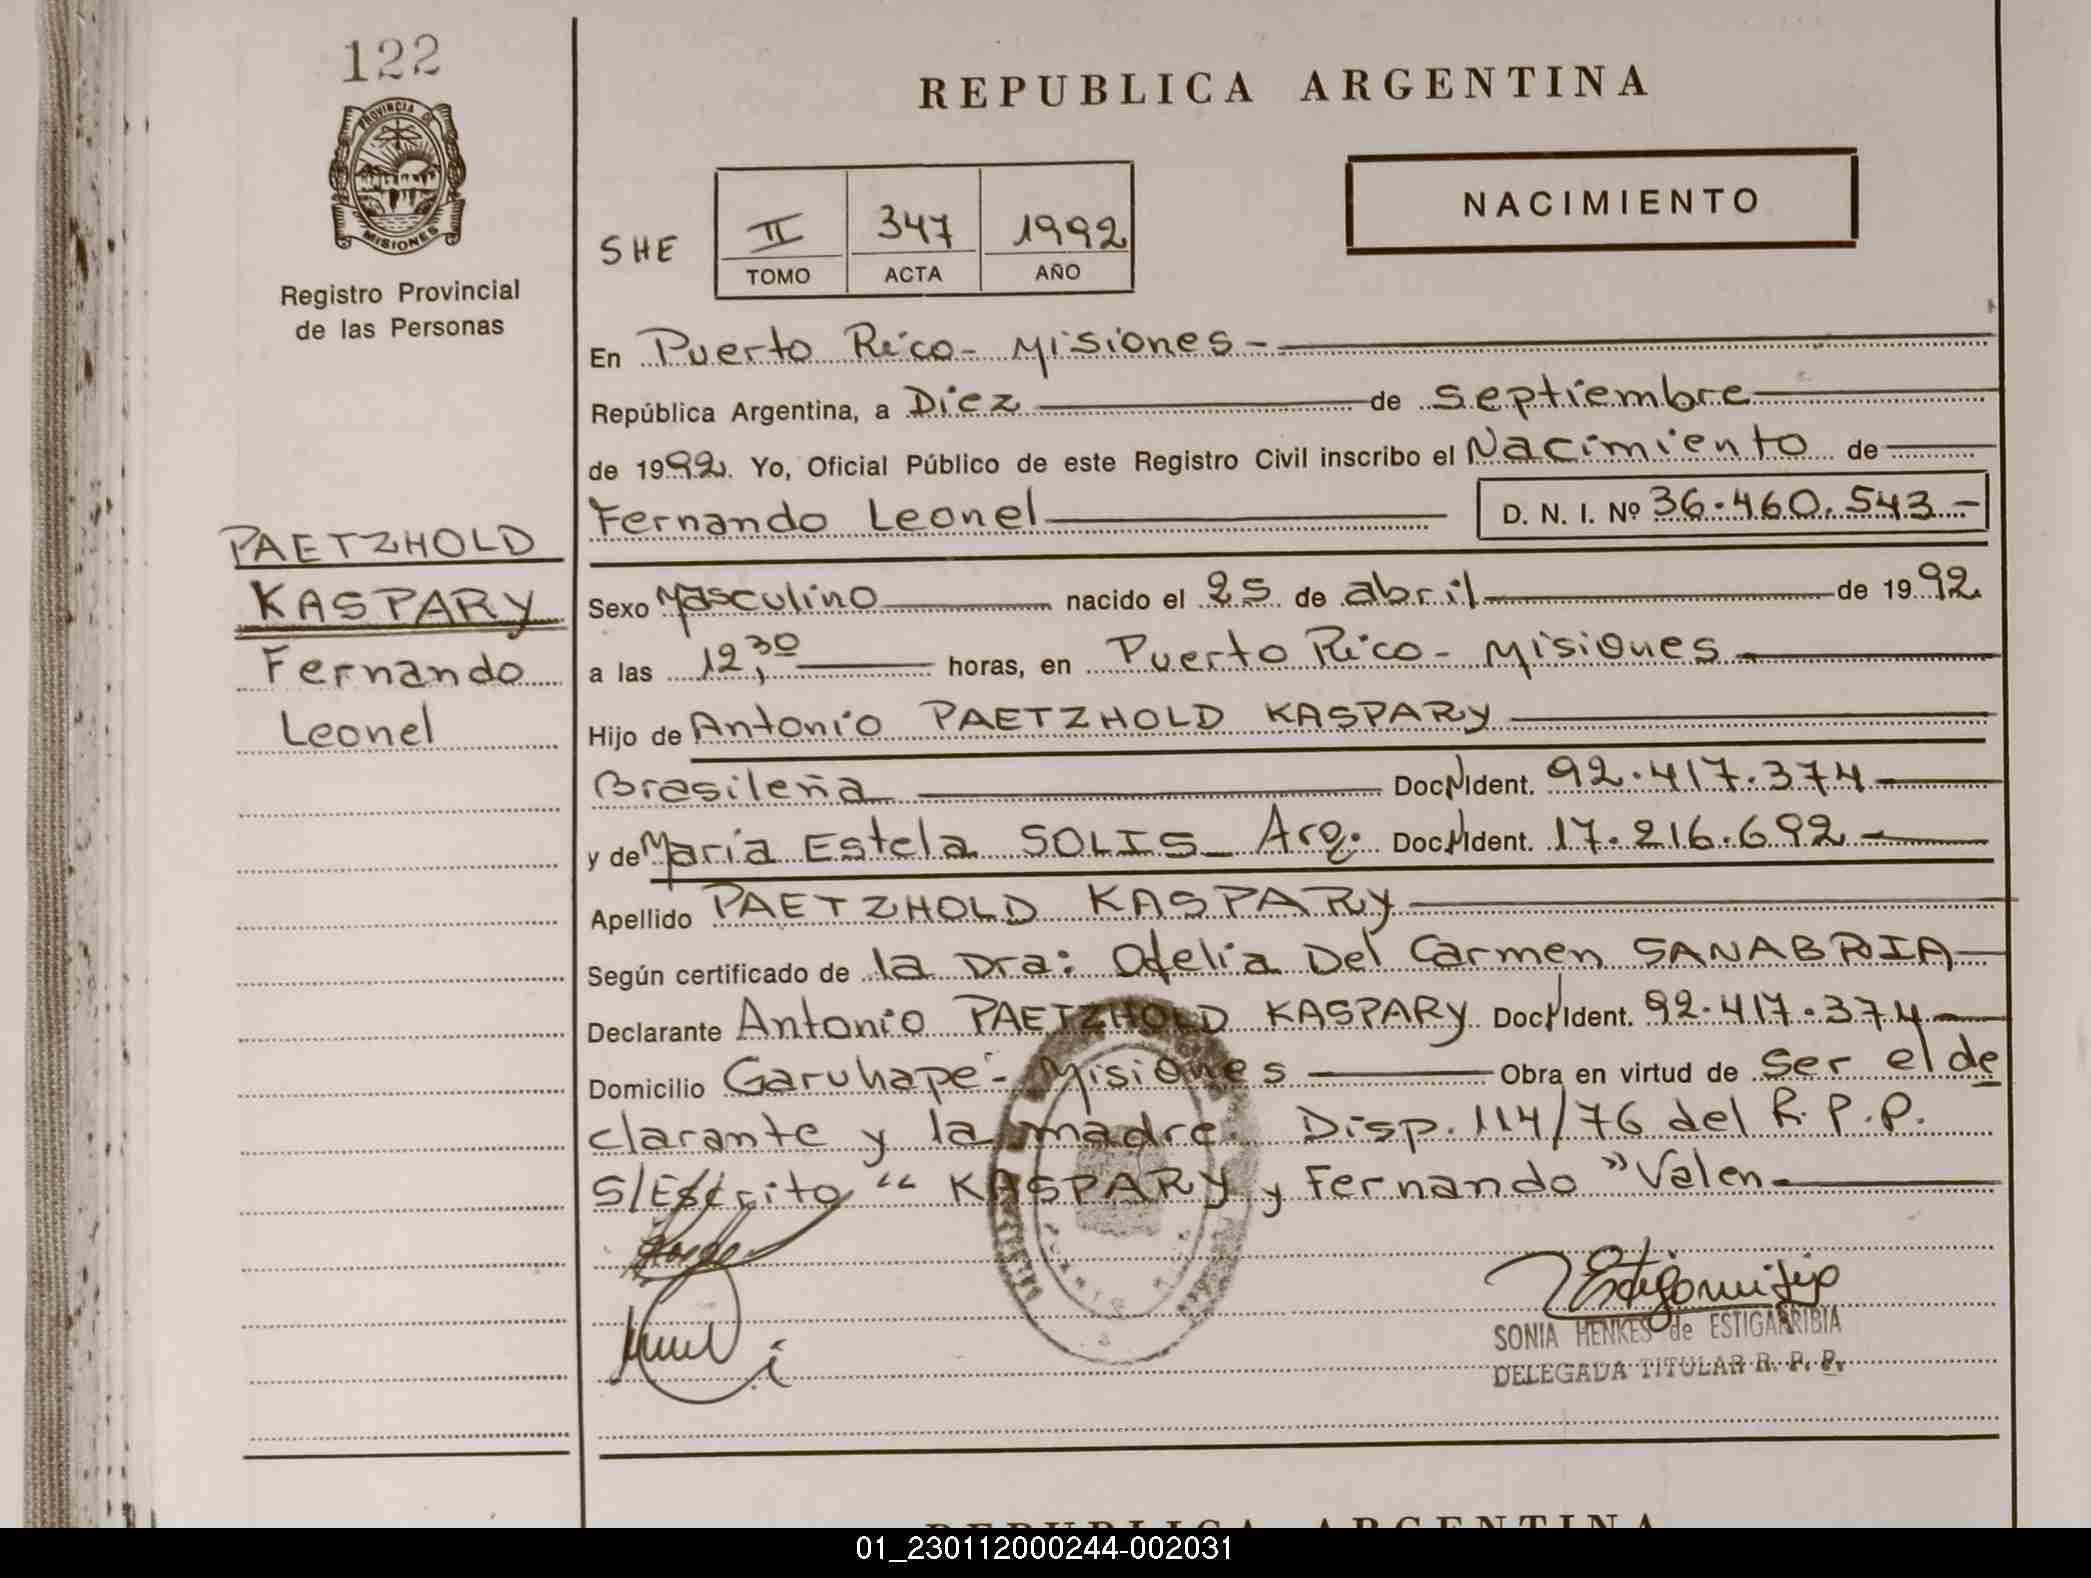 122
PROVINCIA DE
MISIONES
Registro Provincial
de las Personas
PAETZHOLD
KASPARY
Fernando
Leonel
REPUBLICA ARGENTINA
NACIMIENTO
SHE
II 347 1992
TOMO ACTA AÑO
En Puerto Rico - Misiones -
República Argentina, a Diez de septiembre
de 1992. Yo, Oficial Público de este Registro Civil inscribo el Nacimiento de
Fernando Leonel D. N. I. Nº 36.460.543.-
Sexo Masculino nacido el 25 de abril de 1992
a las 12,30 horas, en Puerto Rico - Misiones
Hijo de Antonio PAETZHOLD KASPARY
Brasileña Doc. Ident. 92.417.374
y de María Estela SOLIS - Arg. Doc. Ident. 17.216.692
Apellido PAETZHOLD KASPARY
Según certificado de la Dra: Ofelia Del Carmen SANABRIA
Declarante Antonio PAETZHOLD KASPARY Doc. Ident. 92.417.374
Domicilio Garuhapé - Misiones Obra en virtud de ser el de
clarante y la madre. Disp. 114/76 del R.P.P.
S/Escrito "KASPARY y Fernando" Valen
SONIA HENKES de ESTIGARRIBIA
DELEGADA TITULAR R. P. P.
REPUBLICA ARGENTINA
01_230112000244-002031